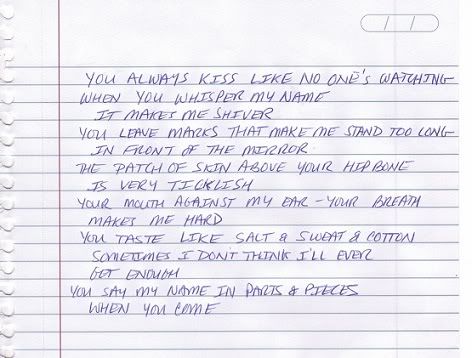 YOU ALWAYS KISS LIKE NO ONE'S WATCHING
WHEN YOU WHISPER MY NAME
IT MAKES ME SHIVER
YOU LEAVE MARKS THAT MAKE ME STAND TOO LONG
IN FRONT OF THE MIRROR
THE PATCH OF SKIN ABOVE YOUR HIPBONE
IS VERY TICKLISH
YOUR MOUTH AGAINST MY EAR - YOUR BREATH
MAKES ME HARD
YOU TASTE LIKE SALT & SWEAT & COTTON
SOMETIMES I DON'T THINK I'LL EVER
GET ENOUGH
YOU SAY MY NAME IN PARTS & PIECES
WHEN YOU COME